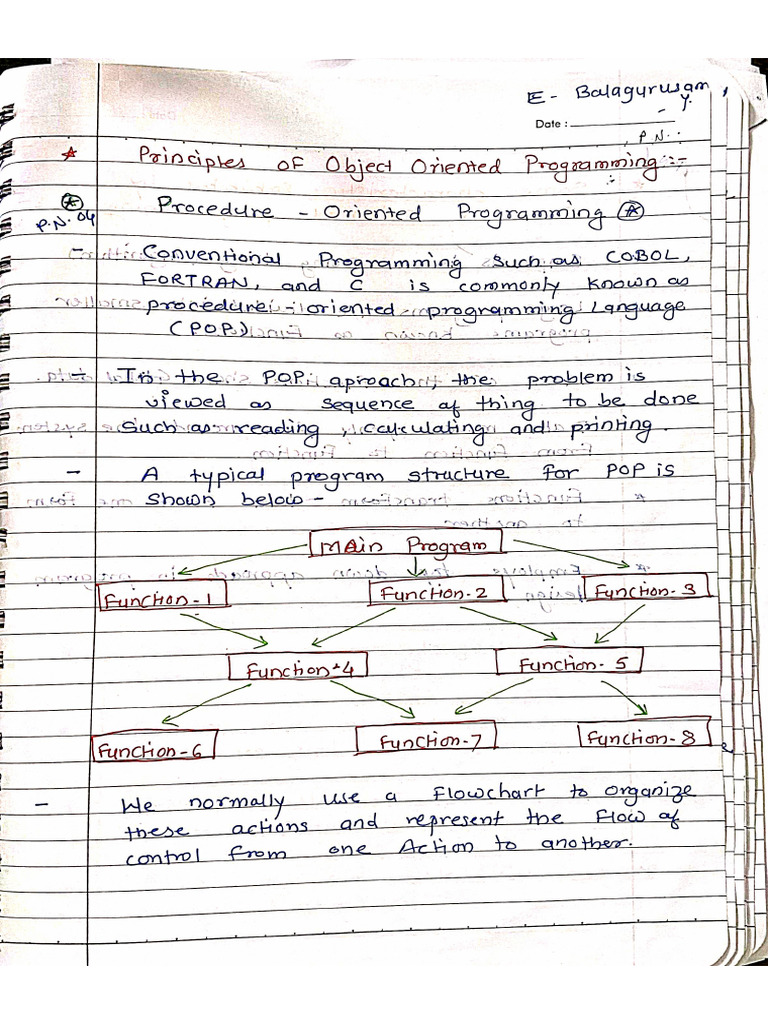 E - Balagurusam
y.
Date :
P.N.:
* Principles of Object Oriented Programming :-
P.N. 04
Procedure - Oriented Programming
- Conventional Programming such as COBOL,
FORTRAN, and C is commonly known as
procedure - oriented programming Language
(POP)
- In the POP aproach, the problem is
viewed as sequence of thing to be done
such as reading, calculating and printing.
- A typical program structure for POP is
shown below -
Main Program
Function - 1 Function - 2 Function - 3
Function - 4 Function - 5
Function - 6 Function - 7 Function - 8
- We normally use a flowchart to organize
these actions and represent the flow of
control from one Action to another.